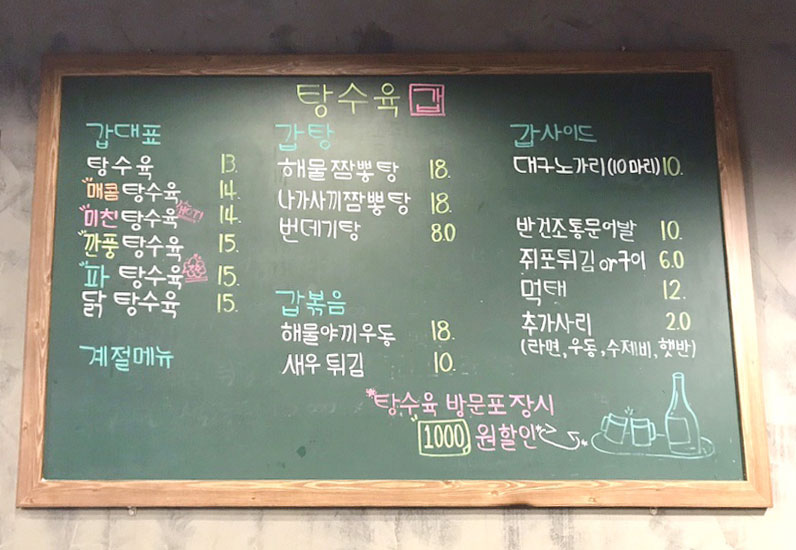 탕수육 갑
갑대표
탕수육 13.
매콤탕수육 14.
미친탕수육 HOT! 14.
깐풍탕수육 15.
파 탕수육 15.
닭 탕수육 15.
계절메뉴
갑탕
해물짬뽕탕 18.
나가사끼짬뽕탕 18.
번데기탕 8.0
갑볶음
해물야끼우동 18.
새우튀김 10.
갑사이드
대구노가리(10마리) 10.
반건조통문어발 10.
쥐포튀김or구이 6.0
먹태 12.
추가사리 2.0
(라면,우동,수제비,햇반)
*탕수육 방문포장시
1000 원할인*